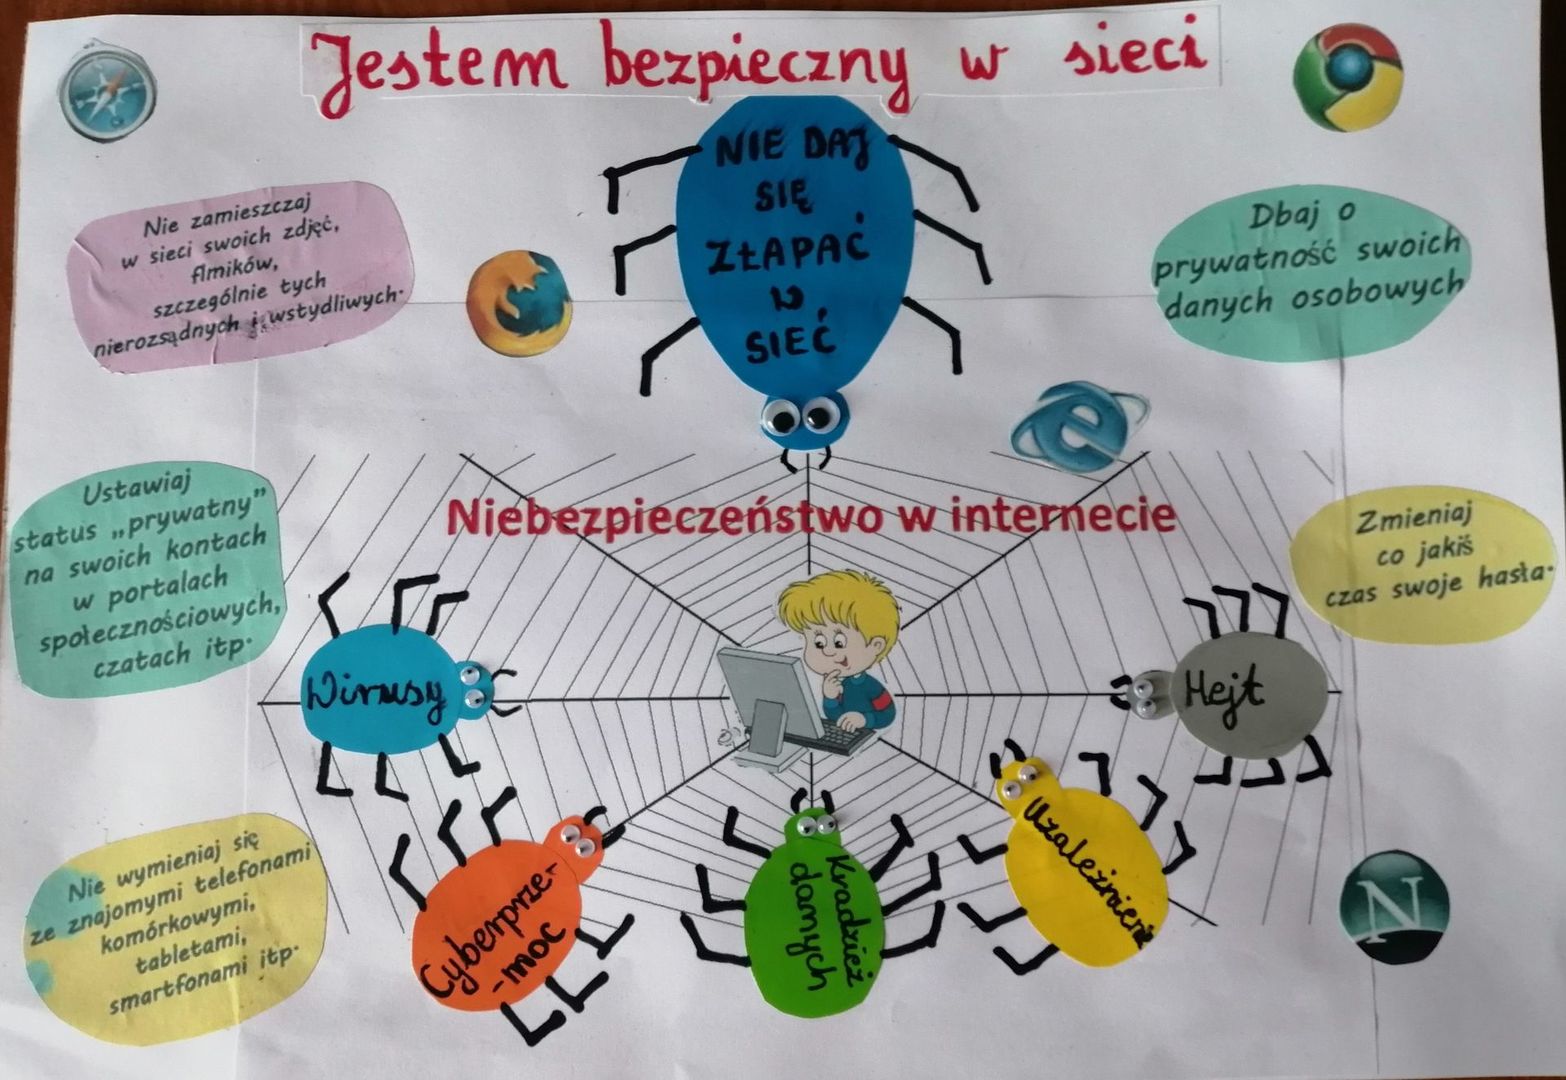 Jestem bezpieczny w sieci
NIE DAJ
SIĘ
ZŁAPAĆ
W
SIEĆ
Nie zamieszczaj
w sieci swoich zdjęć,
flmików,
szczególnie tych
nierozsądnych i wstydliwych.
Dbaj o
prywatność swoich
danych osobowych
Ustawiaj
status „prywatny”
na swoich kontach
w portalach
społecznościowych,
czatach itp.
Niebezpieczeństwo w internecie
Zmieniaj
co jakiś
czas swoje hasła.
Wirusy
Hejt
Cyberprze-
-moc
Kradzież
danych
Uzależnienie
Nie wymieniaj się
ze znajomymi telefonami
komórkowymi,
tabletami,
smartfonami itp.
N